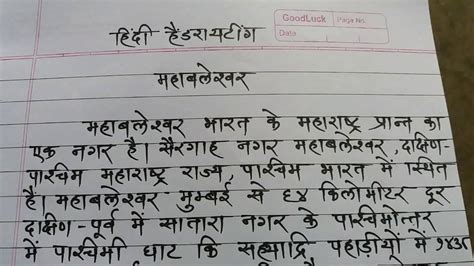 GoodLuck
Page No.
Date
हिंदी हैंडरायटींग
महाबलेश्वर
महाबलेश्वर भारत के महाराष्ट्र प्रान्त का
एक नगर है। सैरगाह नगर महाबलेश्वर, दाक्षिण-
पाश्चिम महाराष्ट्र राज्य, पाश्चिम भारत में स्थित
है। महाबलेश्वर मुम्बई से ६४ किलोमीटर दूर
दाक्षिण-पूर्व में सातारा नगर के पाश्चिमोत्तर
में पाश्चिमी घाट कि सह्याद्रि पहाड़ीयों में १४३८